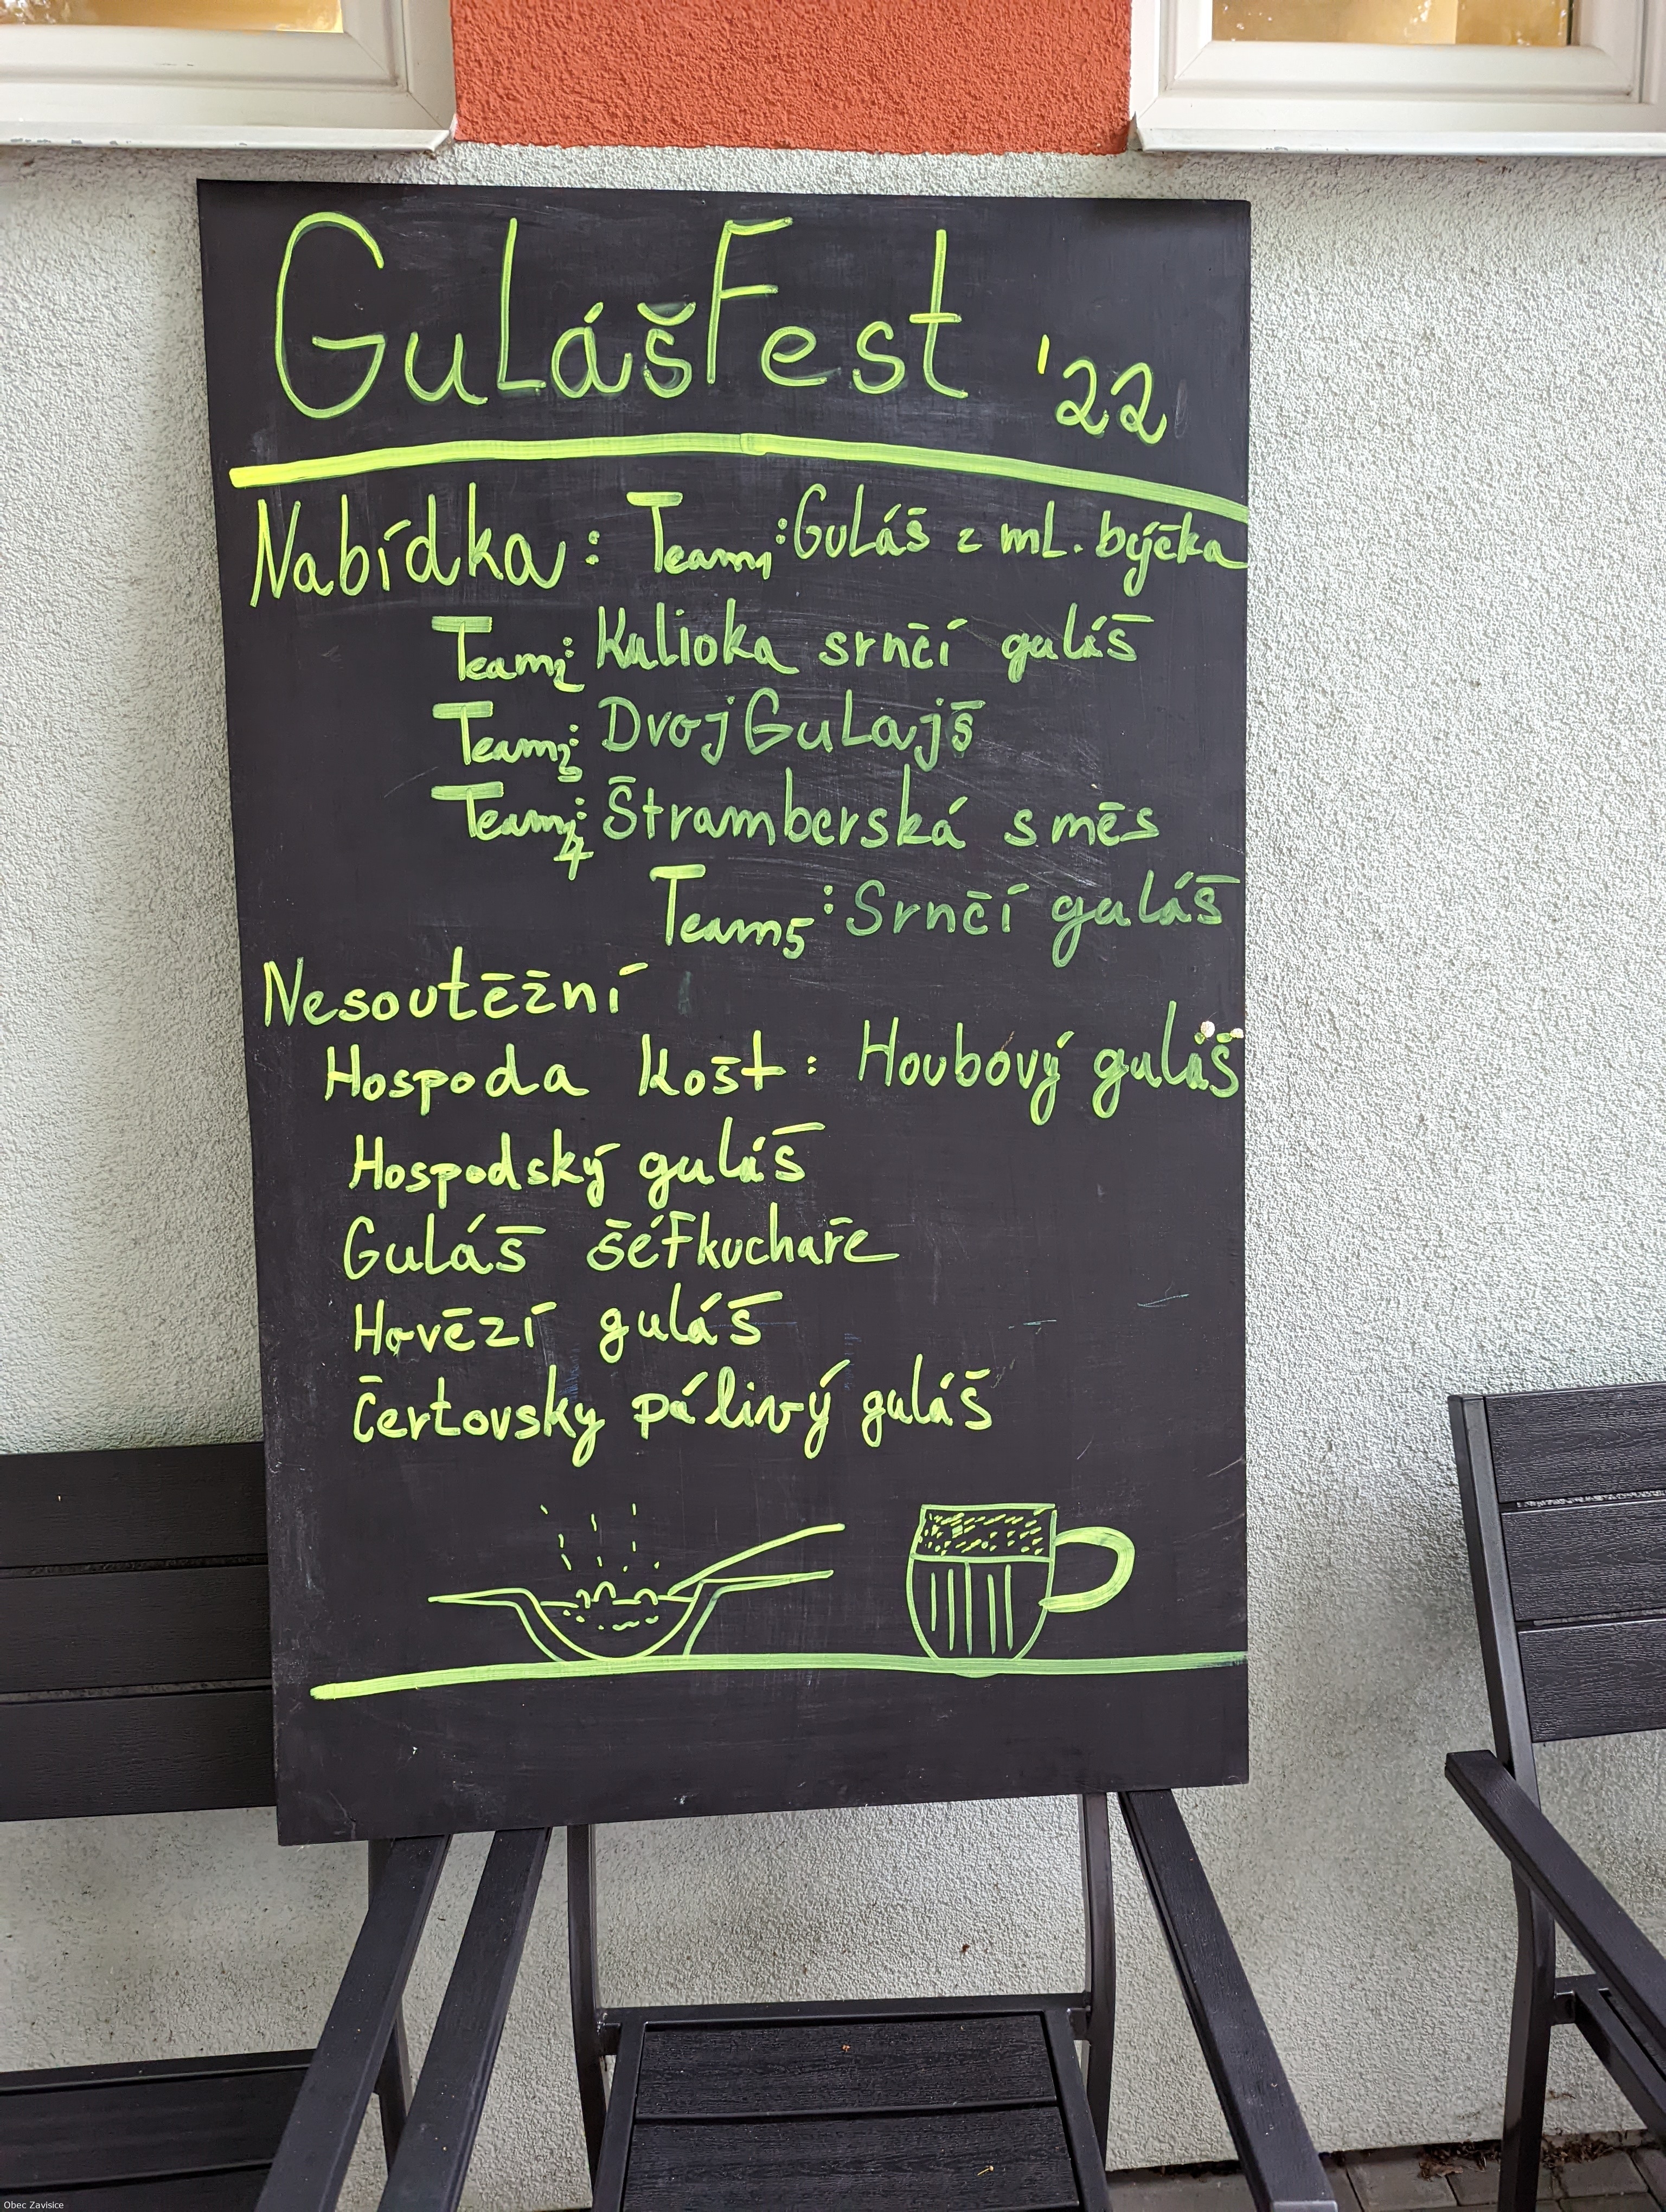 GuLášFest '22
Nabídka: Team1: GuLáš z mL. býčka
Team2: Kulioka srnčí guláš
Team3: DvojGuLajš
Team4: Štramberská směs
Team5: Srnčí guláš
Nesoutěžní
Hospoda Košt: Houbový guláš
Hospodský guláš
Guláš šéfkuchaře
Hovězí guláš
Čertovsky pálivý guláš
Obec Zavisice